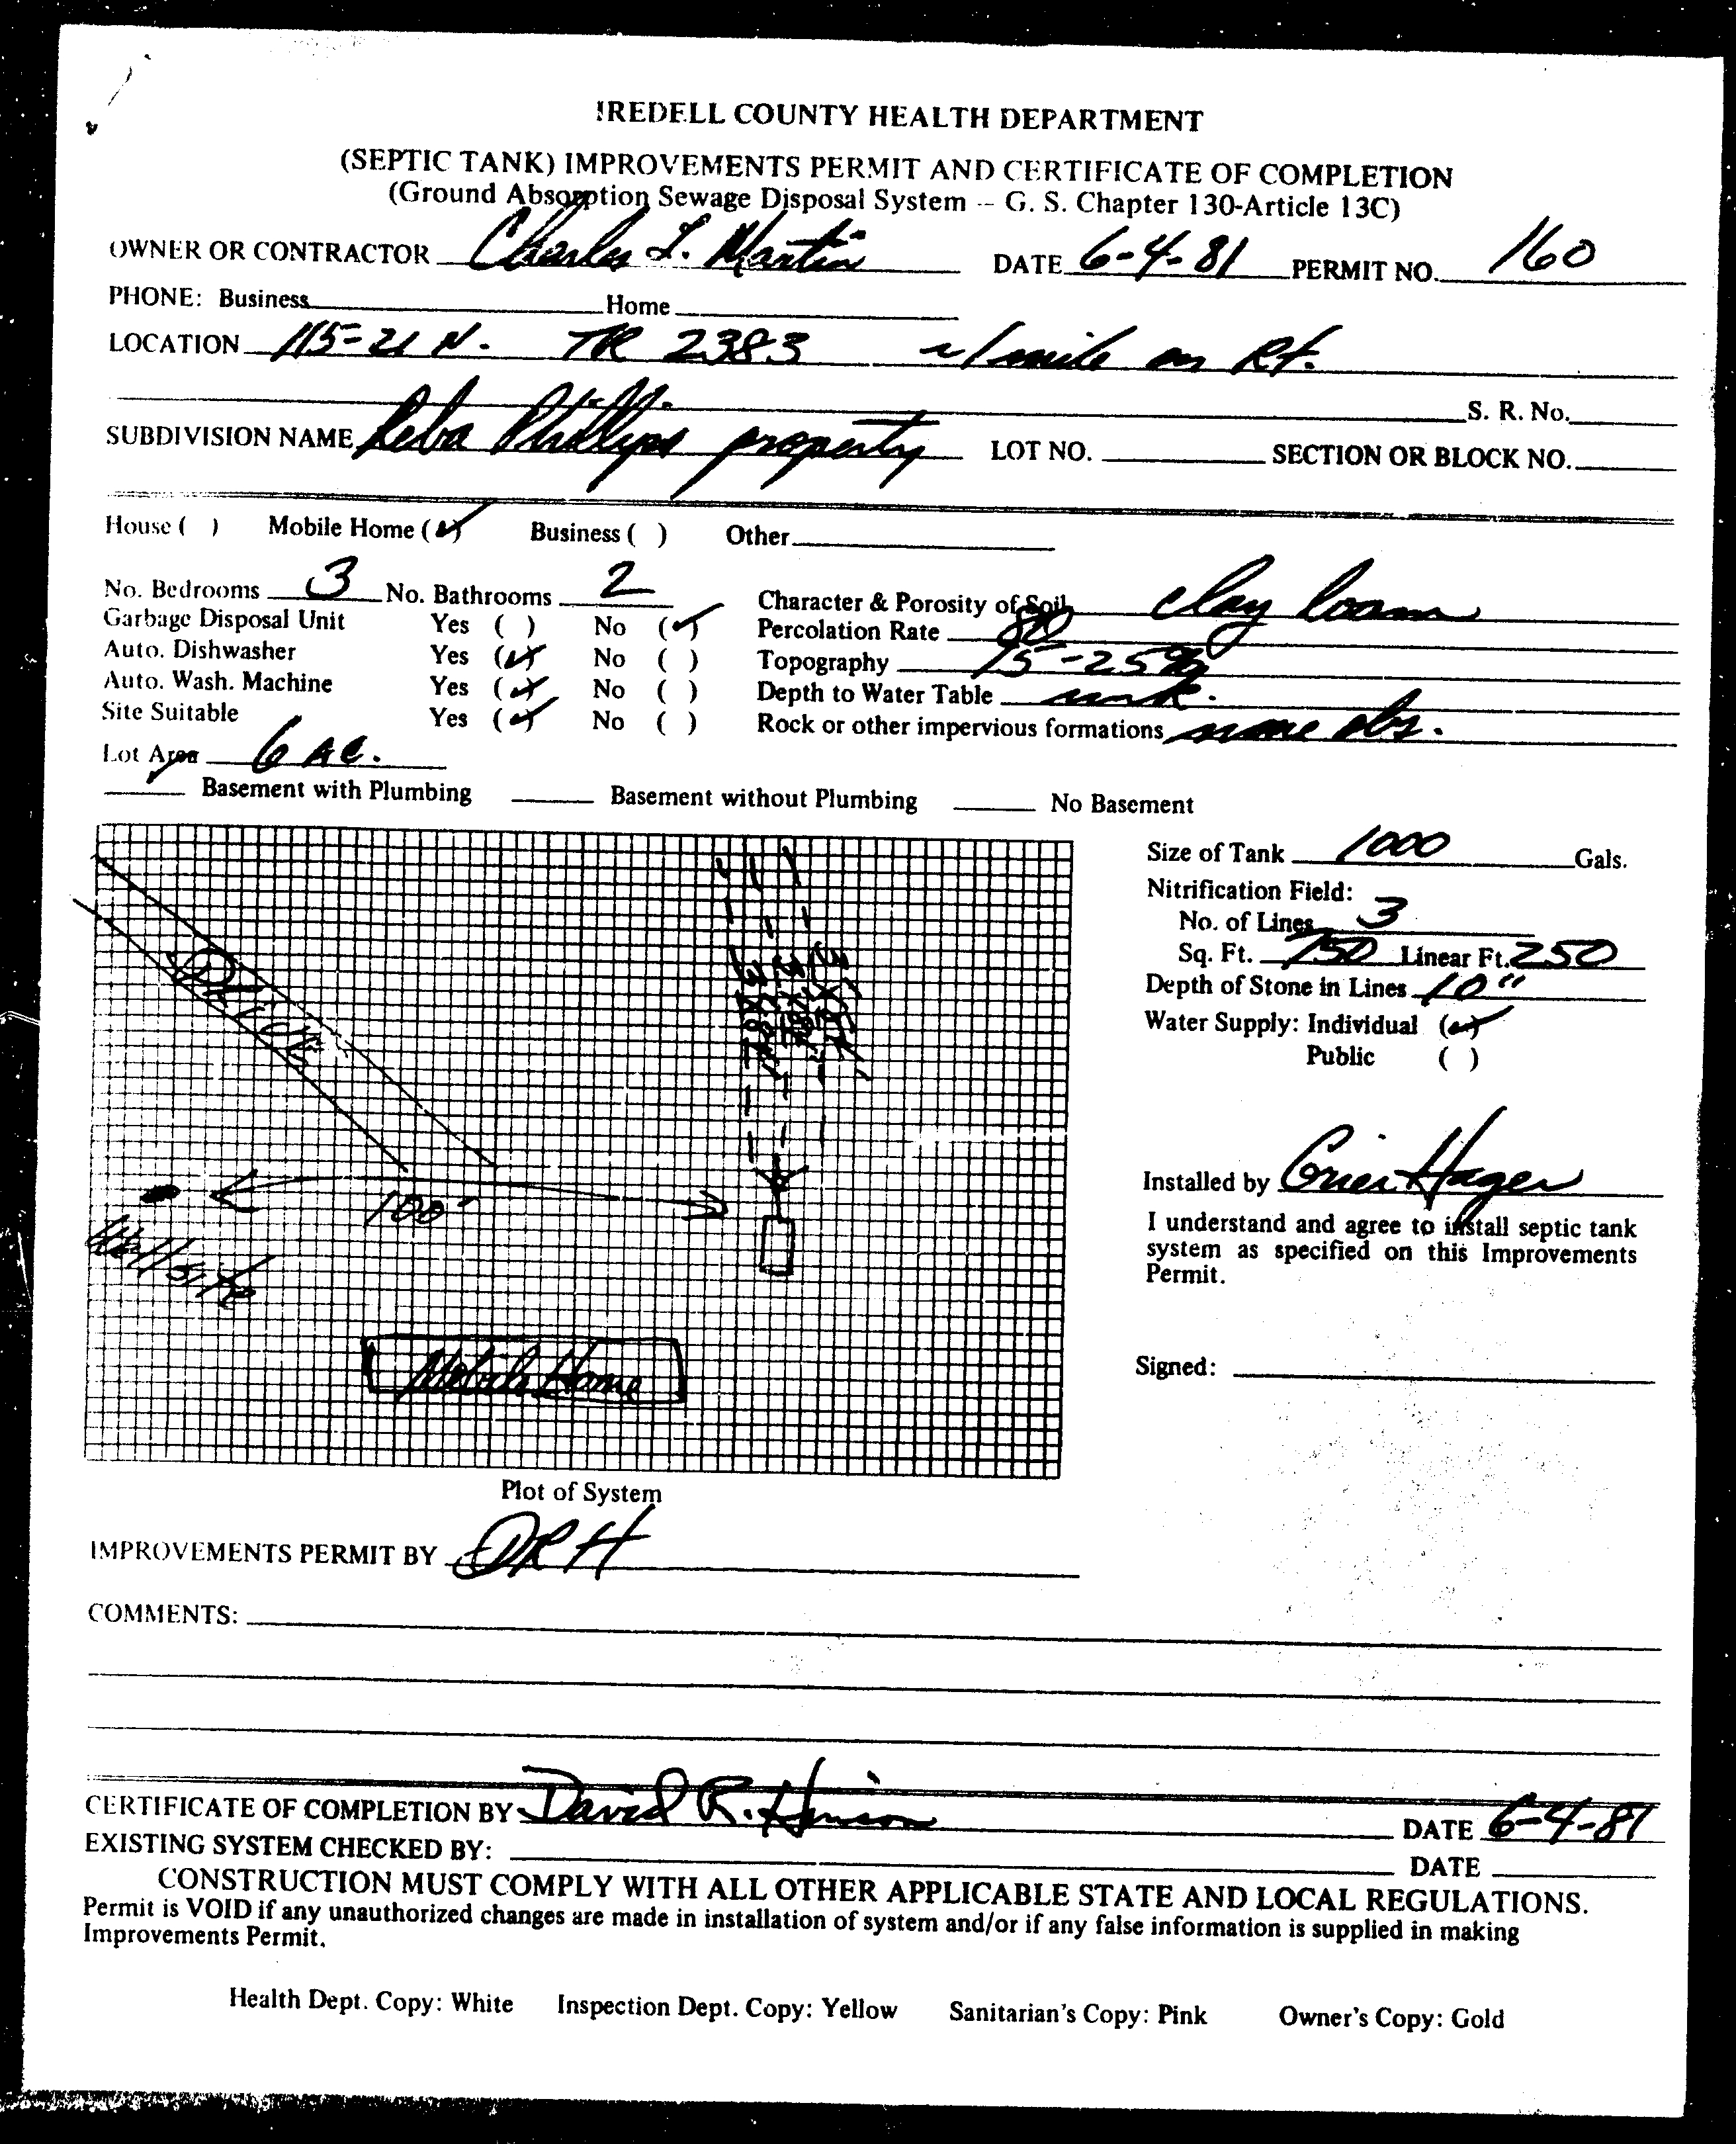 IREDELL COUNTY HEALTH DEPARTMENT
(SEPTIC TANK) IMPROVEMENTS PERMIT AND CERTIFICATE OF COMPLETION
(Ground Absorption Sewage Disposal System -- G. S. Chapter 130-Article 13C)
OWNER OR CONTRACTOR Charles L. Martin DATE 6-4-81 PERMIT NO. 160
PHONE: Business Home
LOCATION 115-21 N. TR 2383 ~1 mile on Rt.
S. R. No.
SUBDIVISION NAME Reba Phillips property LOT NO. SECTION OR BLOCK NO.
House ( ) Mobile Home (✓) Business ( ) Other
No. Bedrooms 3 No. Bathrooms 2 Character & Porosity of Soil clay loam
Garbage Disposal Unit Yes ( ) No (✓) Percolation Rate 80
Auto. Dishwasher Yes (✓) No ( ) Topography 15-25%
Auto. Wash. Machine Yes (✓) No ( ) Depth to Water Table unk.
Site Suitable Yes (✓) No ( ) Rock or other impervious formations none obs.
Lot Area 6 AC.
✓ Basement with Plumbing Basement without Plumbing No Basement
Size of Tank 1000 Gals.
Nitrification Field:
No. of Lines 3
Sq. Ft. 750 Linear Ft. 250
Depth of Stone in Lines 10"
Water Supply: Individual (✓)
Public ( )
100'
Well Site
Mobile Home
Installed by Grier Hager
I understand and agree to install septic tank
system as specified on this Improvements
Permit.
Signed:
Plot of System
IMPROVEMENTS PERMIT BY DRH
COMMENTS:
CERTIFICATE OF COMPLETION BY David R. Hinson DATE 6-4-81
EXISTING SYSTEM CHECKED BY: DATE
CONSTRUCTION MUST COMPLY WITH ALL OTHER APPLICABLE STATE AND LOCAL REGULATIONS.
Permit is VOID if any unauthorized changes are made in installation of system and/or if any false information is supplied in making
Improvements Permit.
Health Dept. Copy: White Inspection Dept. Copy: Yellow Sanitarian's Copy: Pink Owner's Copy: Gold